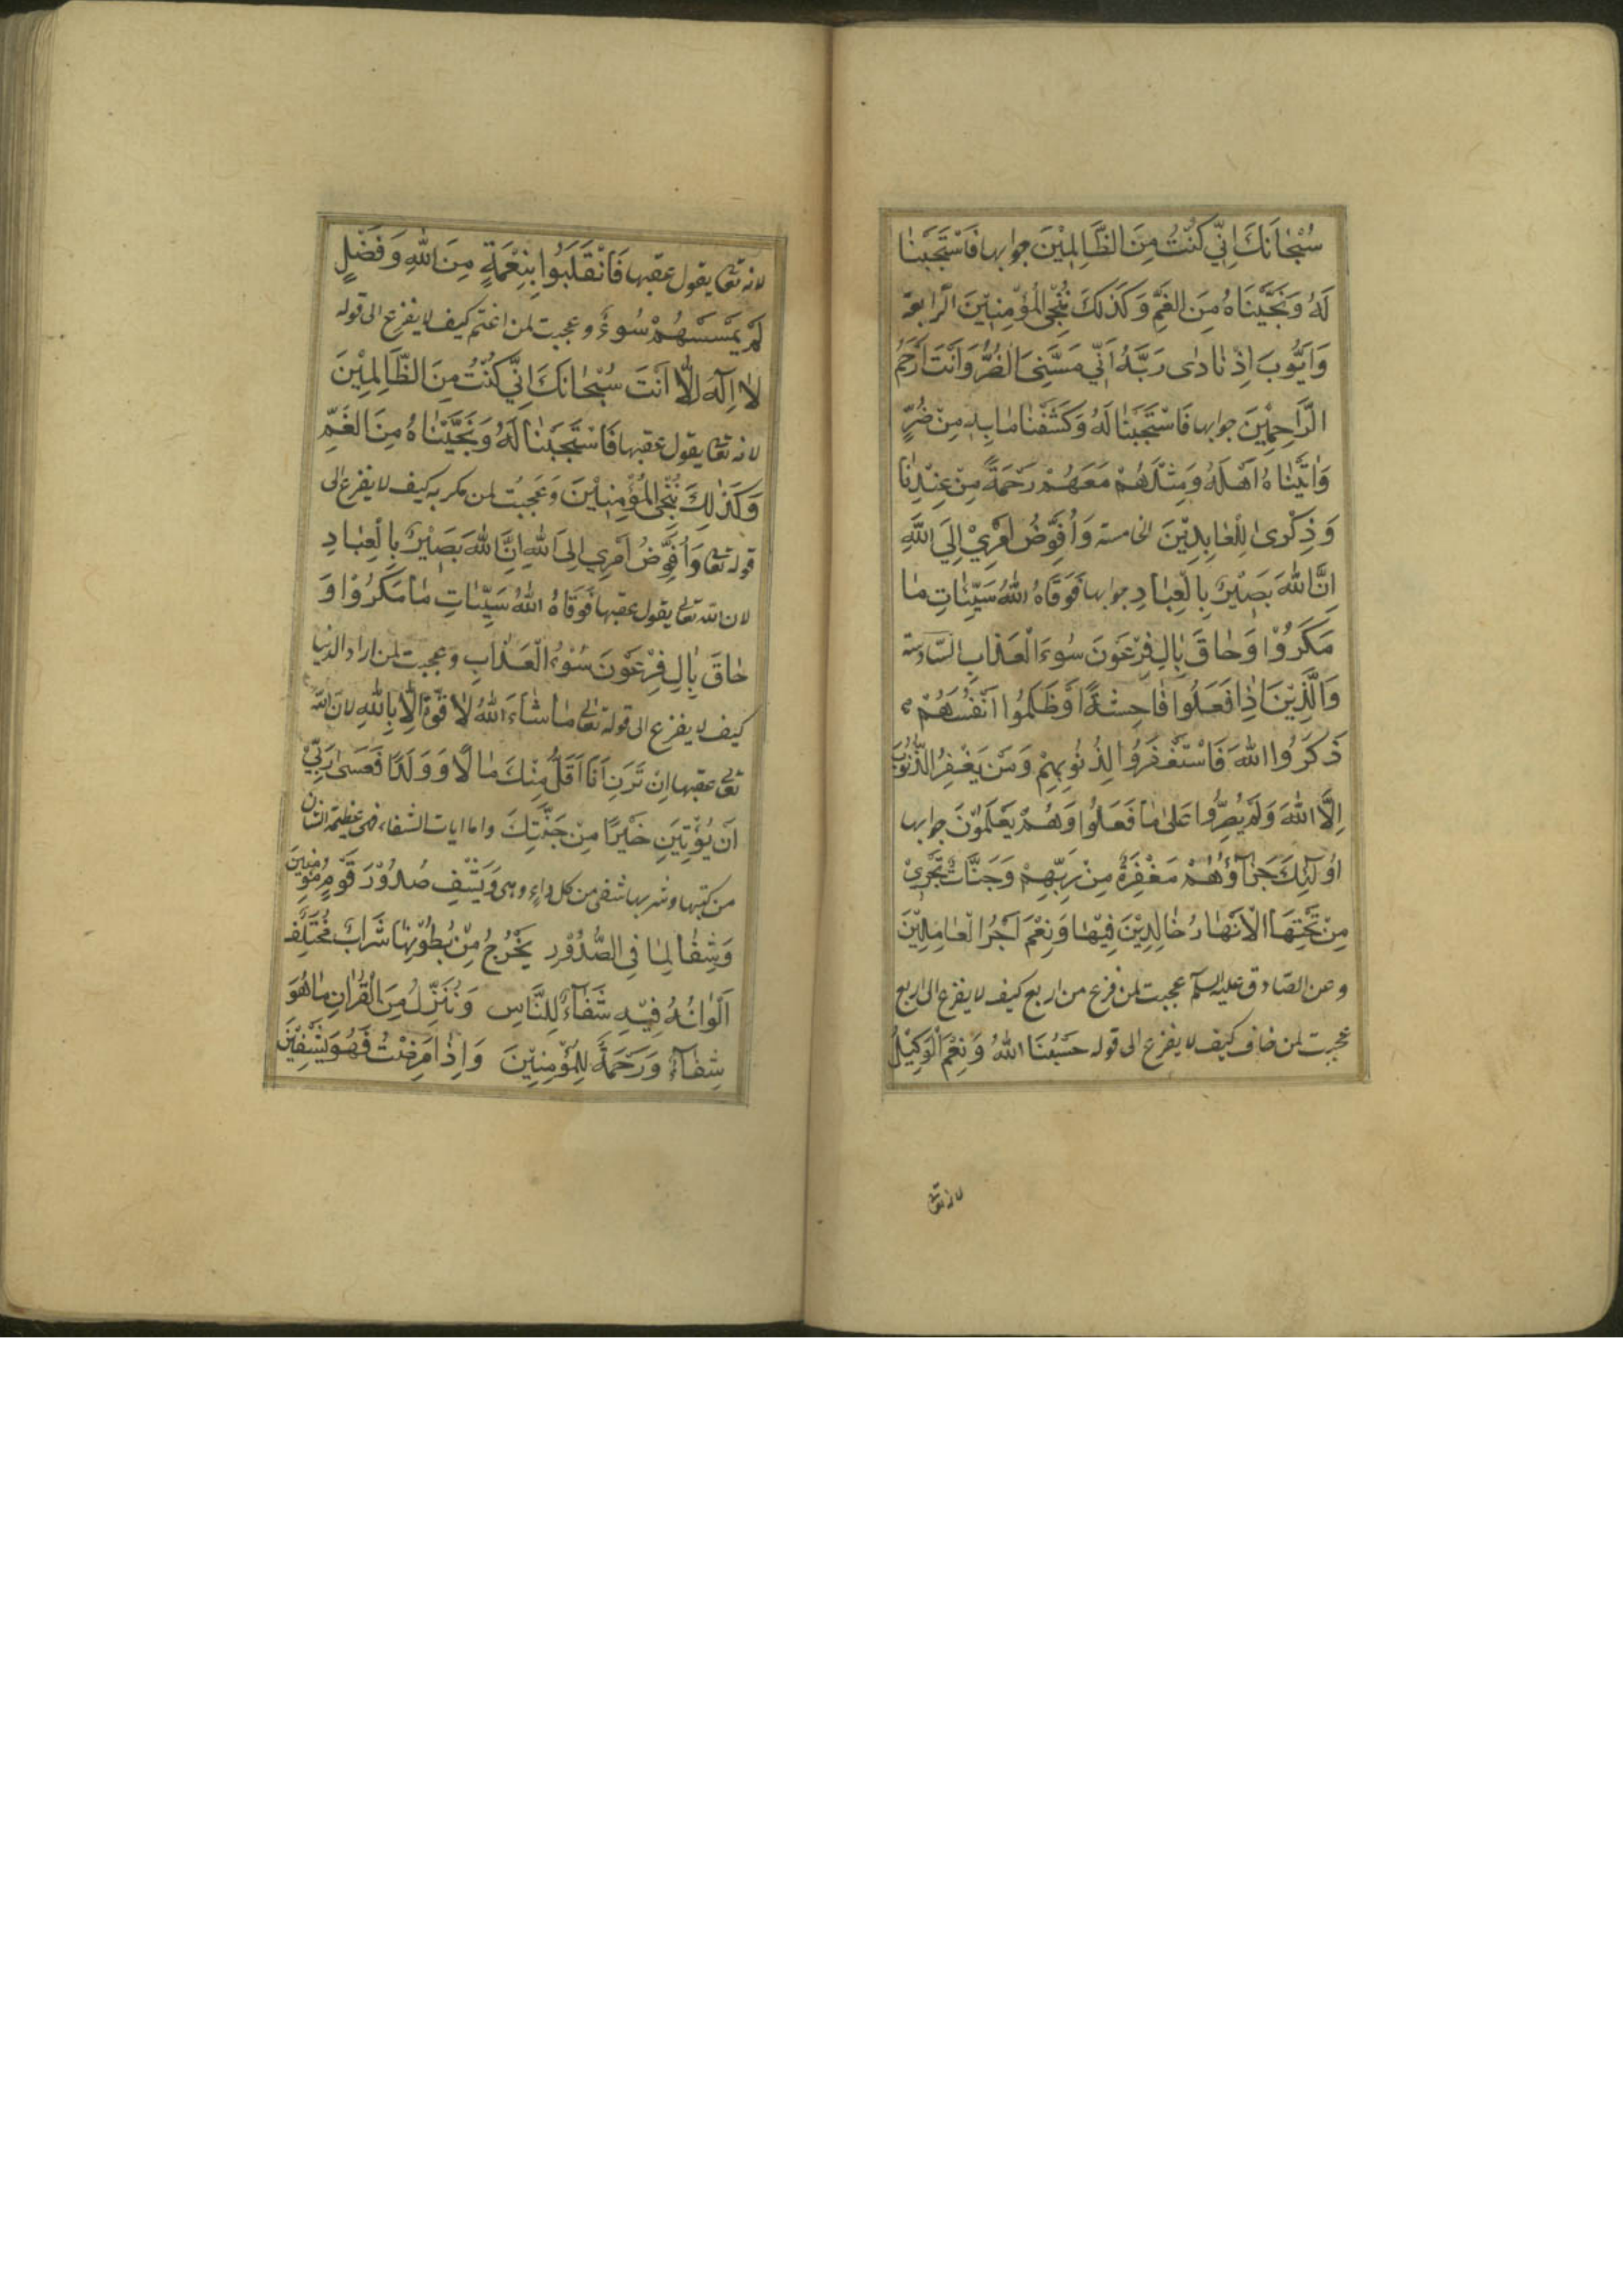 سُبْحٰانَكَ اِنّي كُنْتُ مِنَ الظّٰالِمْينَ جوابها فَاسْتَجَبْنٰا
لَهُ وَنَجَّيْنَاهُ مِنَ الغَمِّ وَكَذٰلِكَ نُنْجِي الْمُؤْمِنٖينَ الرابعة
وَاَيُّوبَ اِذْ نٰادٰى رَبَّهُ اَنّي مَسَّنِيَ الضُّرُّ وَاَنْتَ اَرْحَمُ
الرّٰاحِمٖينَ جوابها فَاسْتَجَبْنٰا لَهُ وَكَشَفْنٰا مٰا بِهِ مِنْ ضُرٍّ
وَاٰتَيْنٰاهُ اَهْلَهُ وَمِثْلَهُمْ مَعَهُمْ رَحْمَةً مِنْ عِنْدِنٰا
وَذِكْرىٰ لِلْعٰابِدِيْنَ الخامسة وَاُفَوِّضُ اَمْرِيْ اِلَى اللّٰهِ
اِنَّ اللّٰهَ بَصٖيْرٌ بِالْعِبٰادِ جوابها فَوَقٰاهُ اللّٰهُ سَيِّئٰاتِ مٰا
مَكَرُوْا وَحٰاقَ بِاٰلِ فِرْعَوْنَ سُوءُ الْعَذٰابِ السّادسة
وَالَّذِيْنَ اِذٰا فَعَلُوا فٰاحِشَةً اَوْ ظَلَمُوا اَنْفُسَهُمْ
ذَكَرُوا اللّٰهَ فَاسْتَغْفَرُوا لِذُنُوبِهِمْ وَمَنْ يَغْفِرُ الذُّنُوبَ
اِلَّا اللّٰهُ وَلَمْ يُصِرُّوا عَلىٰ مٰا فَعَلُوا وَهُمْ يَعْلَمُوْنَ جوابها
اُولٰئِكَ جَزٰآؤُهُمْ مَغْفِرَةٌ مِنْ رَبِّهِمْ وَجَنّٰاتٌ تَجْرِيْ
مِنْ تَحْتِهَا الْاَنْهٰارُ خٰالِدِيْنَ فِيْهٰا وَنِعْمَ اَجْرُ الْعٰامِلِيْنَ
وعن الصّادق عليه السلم عجبت لمن فزع من اربع كيف لا يفزع الى اربع
عجبت لمن خاف كيف لا يفزع الى قوله حَسْبُنَا اللّٰهُ وَنِعْمَ الْوَكِيْلُ
لانه تعا
لانه تعا يقول عقبها فَانْقَلَبُوا بِنِعْمَةٍ مِنَ اللّٰهِ وَفَضْلٍ
لَمْ يَمْسَسْهُمْ سُوءٌ وعجبت لمن اغتم كيف لا يفزع الى قوله
لٰا اِلٰهَ اِلَّا اَنْتَ سُبْحٰانَكَ اِنّي كُنْتُ مِنَ الظّٰالِمِيْنَ
لانه تعا يقول عقبها فَاسْتَجَبْنٰا لَهُ وَنَجَّيْنٰاهُ مِنَ الغَمِّ
وَكَذٰلِكَ نُنْجِي الْمُؤْمِنٖيْنَ وَعَجِبْتُ لمن مكر به كيف لا يفزع الى
قوله تعا وَاُفَوِّضُ اَمْرِي اِلَى اللّٰهِ اِنَّ اللّٰهَ بَصٖيْرٌ بِالْعِبٰادِ
لان الله تعالى يقول عقبها فَوَقٰاهُ اللّٰهُ سَيِّئٰاتِ مٰا مَكَرُوْا وَ
حٰاقَ بِاٰلِ فِرْعَوْنَ سُوْءُ الْعَذٰابِ وعجبت لمن اراد الدنيا
كيف لا يفزع الى قوله تعالى مٰا شٰاءَ اللّٰهُ لٰا قُوَّةَ اِلّٰا بِاللّٰهِ لان الله
تعالى عقبها اِنْ تَرَنِ اَنَا اَقَلَّ مِنْكَ مٰالًا وَوَلَدًا فَعَسىٰ رَبِّيْ
اَنْ يُؤْتِيَنِ خَيْرًا مِنْ جَنَّتِكَ واما ايات الشفاء فهى عظيمة الشان
من كتبها وشربها شفى من كل داء وهى وَيَشْفِ صُدُوْرَ قَوْمٍ مُؤْمِنِينَ
وَشِفٰاءٌ لِمٰا فِي الصُّدُوْرِ يَخْرُجُ مِنْ بُطُوْنِهٰا شَرٰابٌ مُخْتَلِفٌ
اَلْوٰانُهُ فِيْهِ شِفٰآءٌ لِلنّٰاسِ وَنُنَزِّلُ مِنَ الْقُرْاٰنِ مٰا هُوَ
شِفٰآءٌ وَرَحْمَةٌ لِلْمُؤْمِنِيْنَ وَاِذٰا مَرِضْتُ فَهُوَ يَشْفِيْنِ